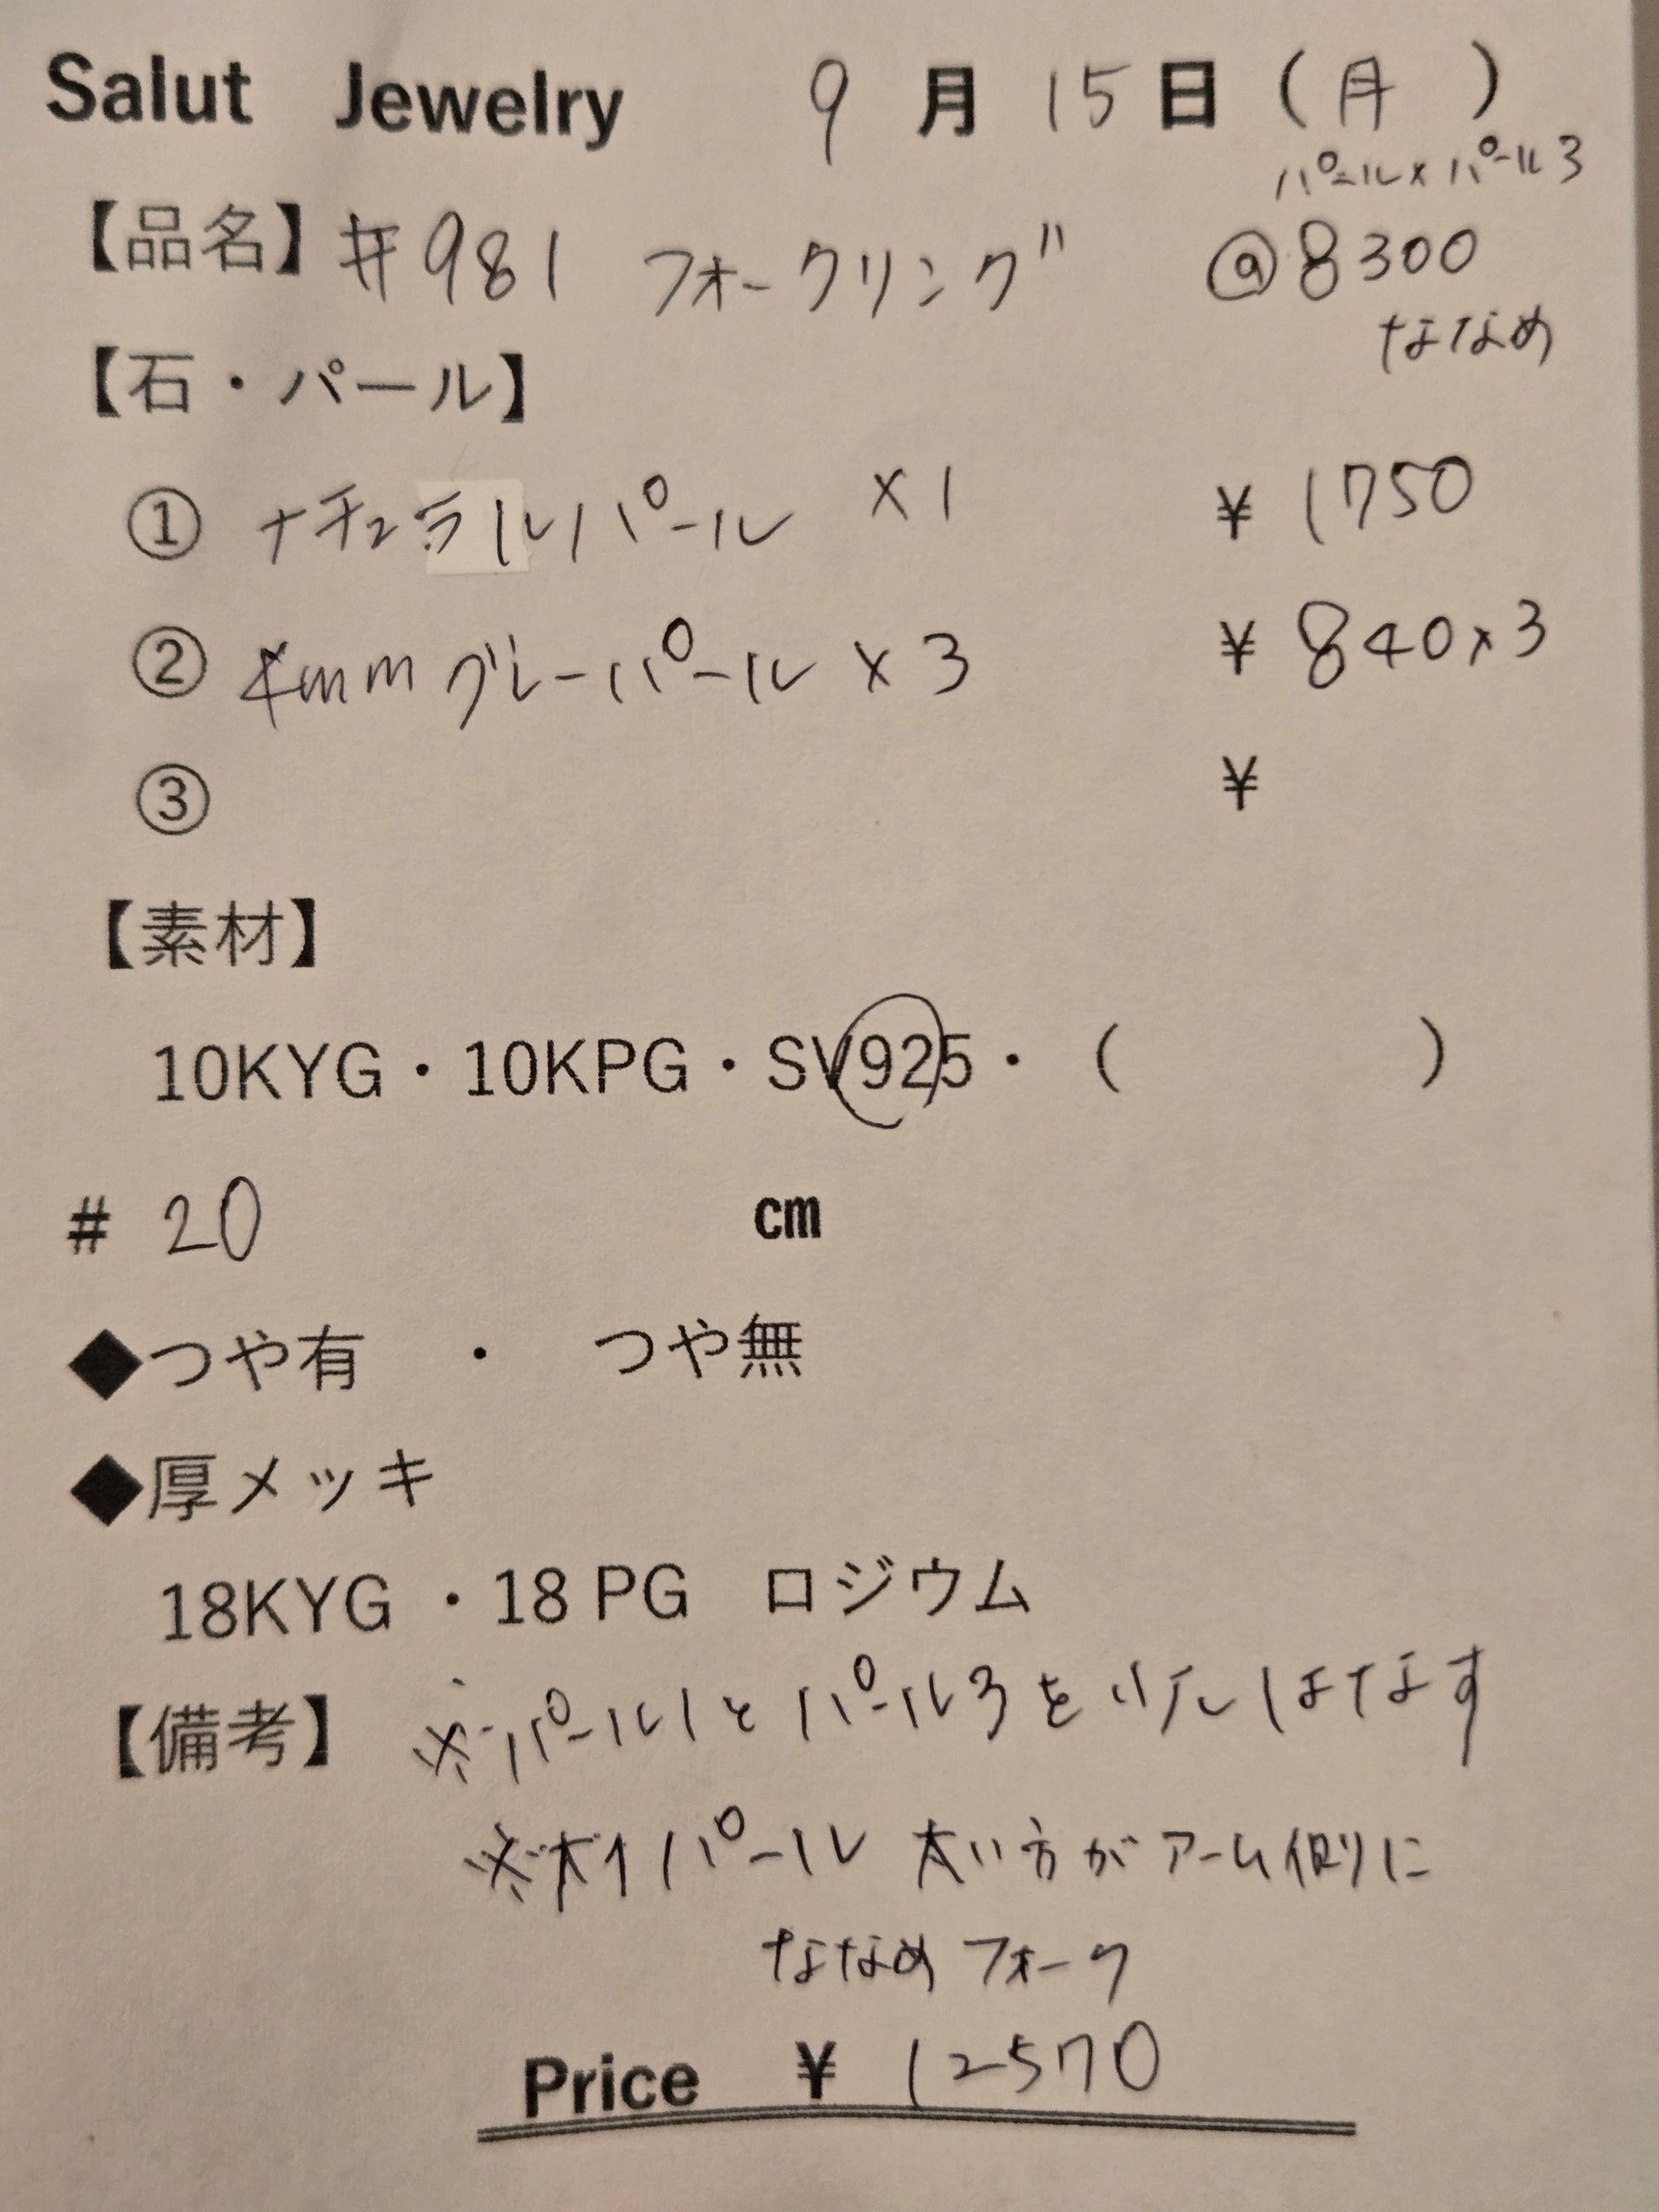 Salut Jewelry 9月15日(月)
パール×パール3
【品名】#981 フォークリング @8300
ななめ
【石・パール】
① ナチュラルパール ×1 ¥1750
② 4mmグレーパール×3 ¥840×3
③ ¥
【素材】
10KYG・10KPG・SV925・( )
# 20 cm
◆つや有 ・ つや無
◆厚メッキ
18KYG ・18 PG ロジウム
【備考】 ※パール1とパール3を少しはなす
※大1パール 太い方がアーム側に
ななめフォーク
Price ¥ 12570